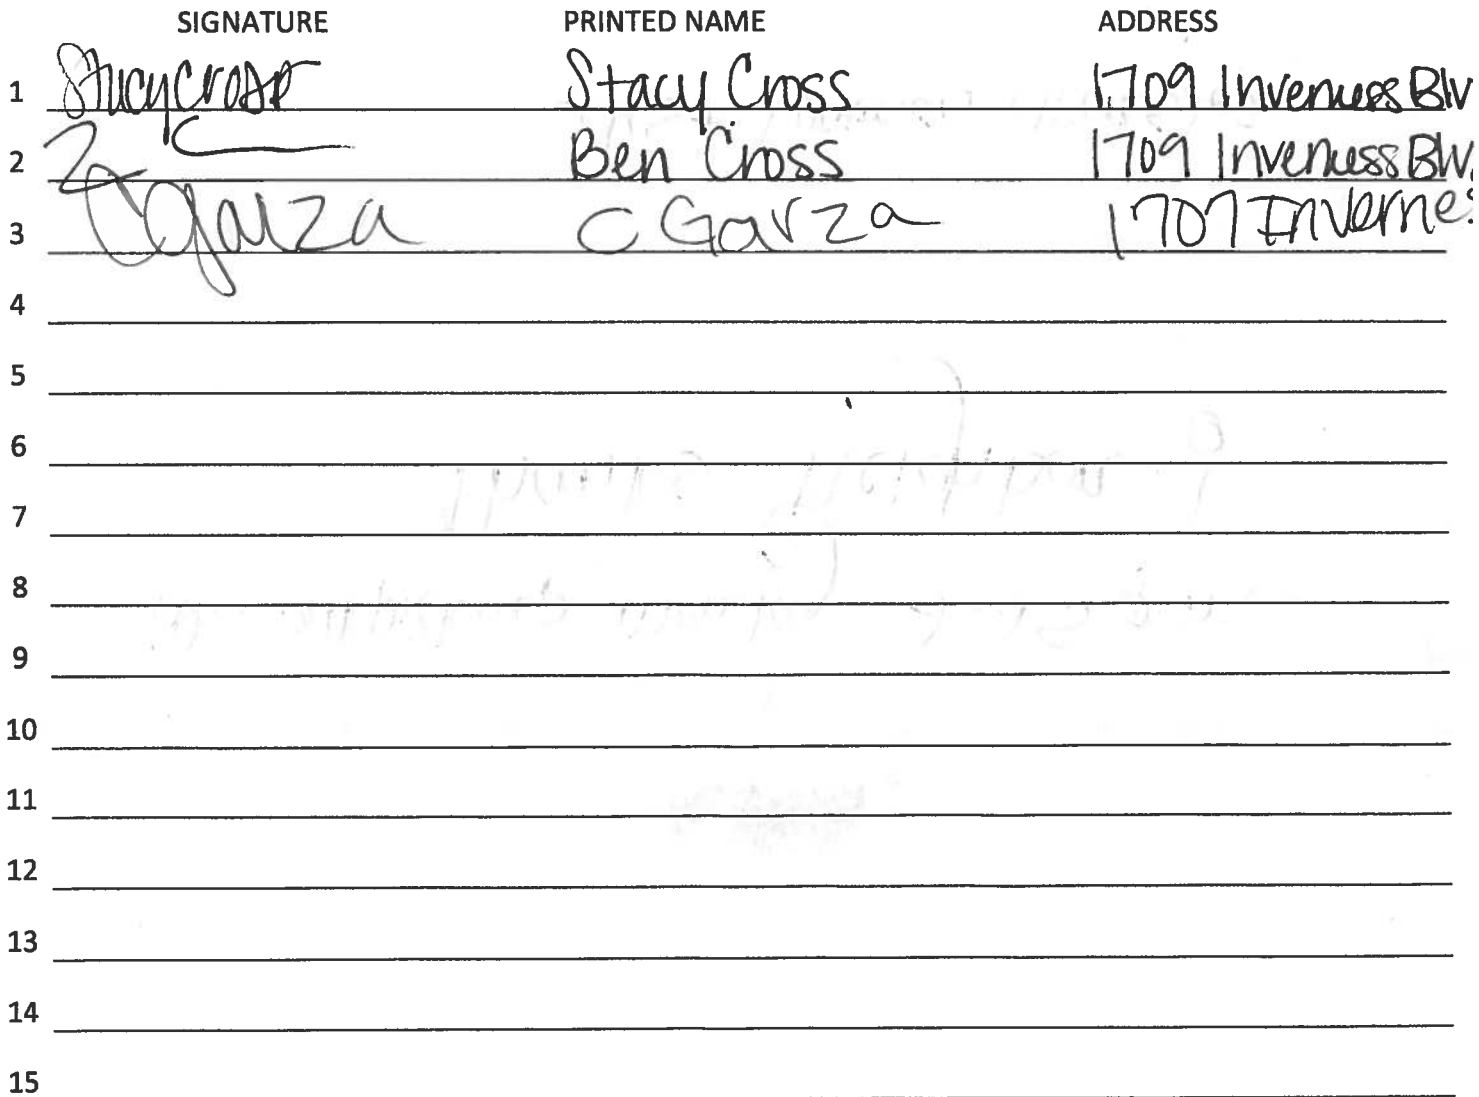 SIGNATURE PRINTED NAME ADDRESS
1 Stacy Cross Stacy Cross 1709 Inverness Blv
2 Ben Cross 1709 Inverness Blv
3 CGarza C Garza 1707 Invernes
4
5
6
7
8
9
10
11
12
13
14
15